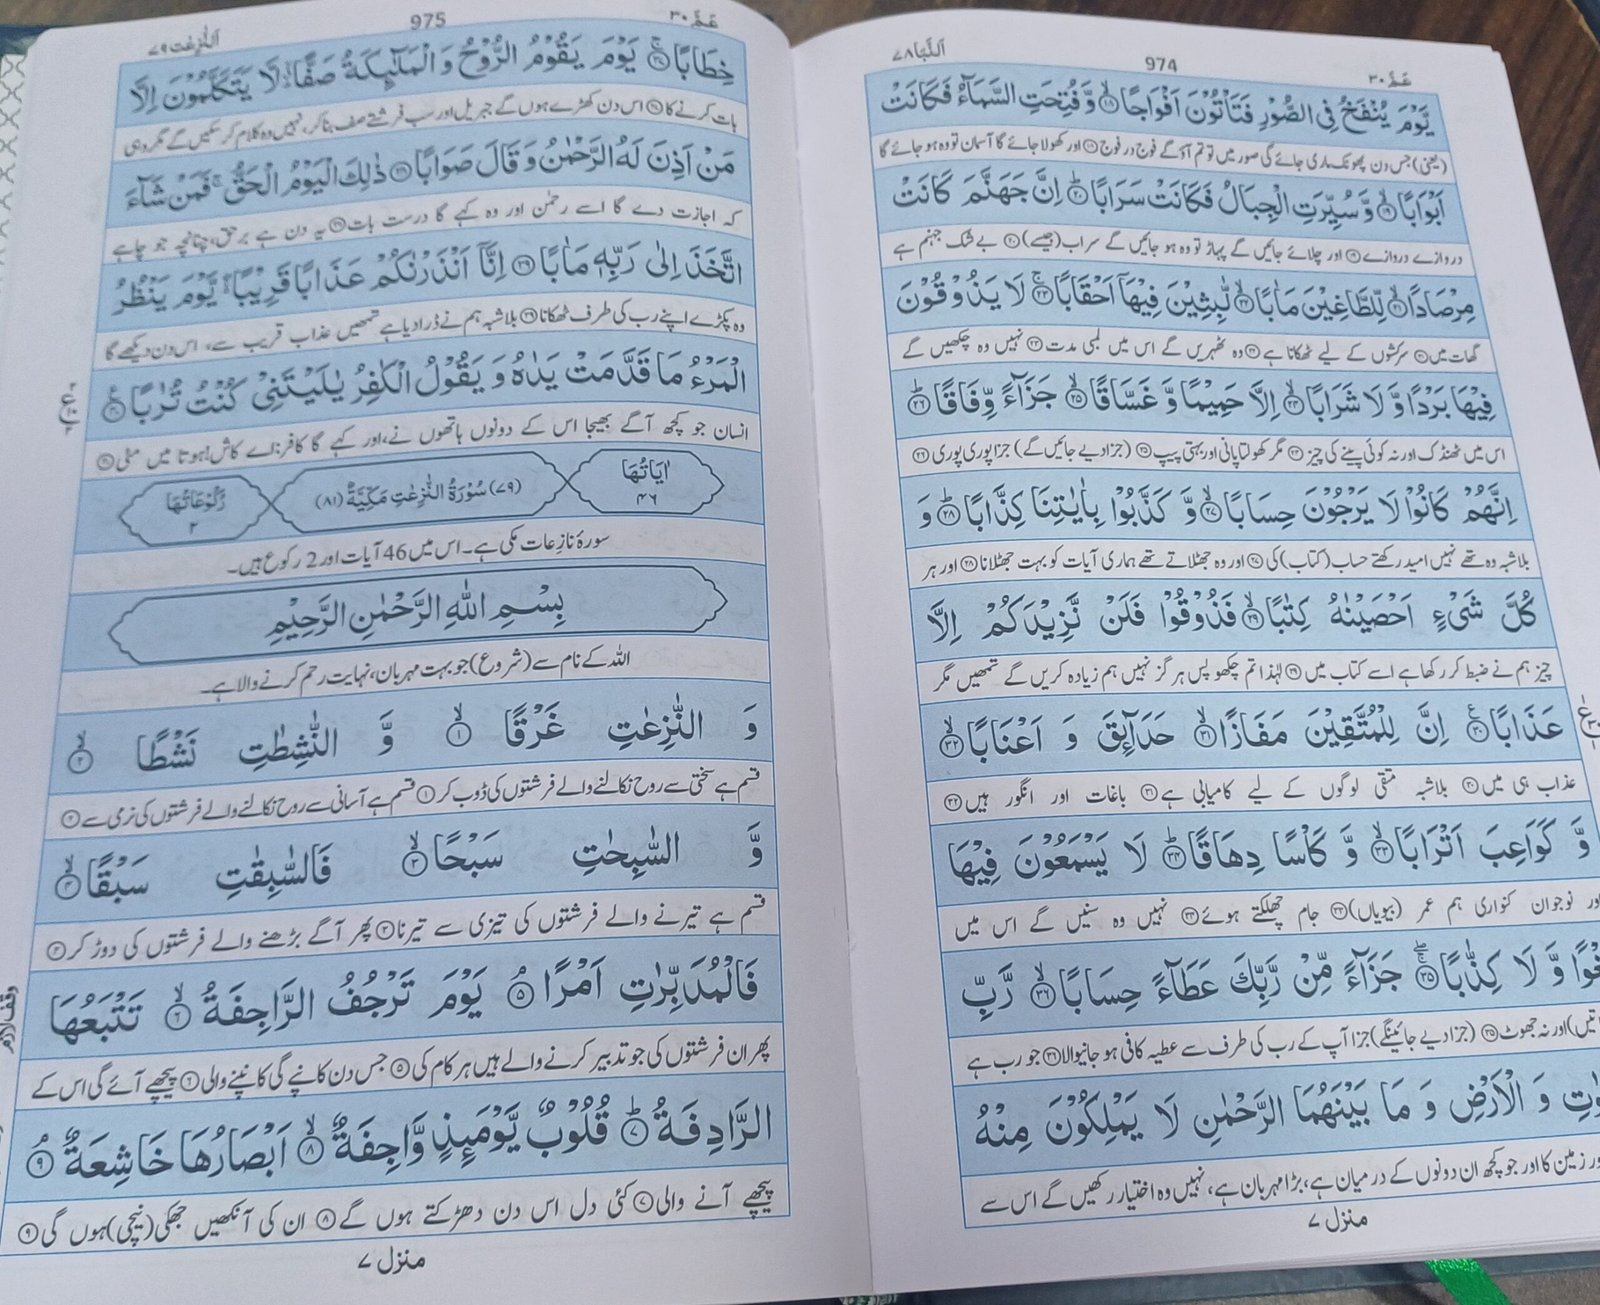 عَمَّ ٣٠ 974 اَلنَّبَا ٧٨
يَّوْمَ يُنْفَخُ فِى الصُّوْرِ فَتَاْتُوْنَ اَفْوَاجًا ۙ‏﴿۱۸﴾ وَّ فُتِحَتِ السَّمَآءُ فَكَانَتْ
(یعنی) جس دن پھونک ماری جائے گی صور میں تو تم آؤ گے فوج در فوج ﴿۱۸﴾ اور کھولا جائے گا آسمان تو وہ ہو جائے گا
اَبْوَابًا ۙ‏﴿۱۹﴾ وَّ سُيِّرَتِ الْجِبَالُ فَكَانَتْ سَرَابًا ؕ‏﴿۲۰﴾ اِنَّ جَهَنَّمَ كَانَتْ
دروازے دروازے ﴿۱۹﴾ اور چلائے جائیں گے پہاڑ تو وہ ہو جائیں گے سراب (جیسے) ﴿۲۰﴾ بے شک جہنم ہے
مِرْصَادًا ۙ‏﴿۲۱﴾ لِّلطَّاغِيْنَ مَاٰبًا ۙ‏﴿۲۲﴾ لّٰبِثِيْنَ فِيْهَاۤ اَحْقَابًا ۚ‏﴿۲۳﴾ لَا يَذُوْقُوْنَ
گھات میں ﴿۲۱﴾ سرکشوں کے لیے ٹھکانا ہے ﴿۲۲﴾ وہ ٹھہریں گے اس میں لمبی مدت ﴿۲۳﴾ نہیں وہ چکھیں گے
فِيْهَا بَرْدًا وَّ لَا شَرَابًا ۙ‏﴿۲۴﴾ اِلَّا حَمِيْمًا وَّ غَسَّاقًا ۙ‏﴿۲۵﴾ جَزَآءً وِّفَاقًا ؕ‏﴿۲۶﴾
اس میں ٹھنڈک اور نہ کوئی پینے کی چیز ﴿۲۴﴾ مگر کھولتا پانی اور بہتی پیپ ﴿۲۵﴾ (جزا دیے جائیں گے) جزا پوری پوری ﴿۲۶﴾
اِنَّهُمْ كَانُوْا لَا يَرْجُوْنَ حِسَابًا ۙ‏﴿۲۷﴾ وَّ كَذَّبُوْا بِاٰيٰتِنَا كِذَّابًا ؕ‏﴿۲۸﴾ وَ
بلاشبہ وہ تھے نہیں امید رکھتے حساب (کتاب) کی ﴿۲۷﴾ اور وہ جھٹلاتے تھے ہماری آیات کو بہت جھٹلانا ﴿۲۸﴾ اور ہر
كُلَّ شَىْءٍ اَحْصَيْنٰهُ كِتٰبًا ۙ‏﴿۲۹﴾ فَذُوْقُوْا فَلَنْ نَّزِيْدَكُمْ اِلَّا
چیز ہم نے ضبط کر رکھا ہے اسے کتاب میں ﴿۲۹﴾ لہٰذا تم چکھو پس ہرگز نہیں ہم زیادہ کریں گے تمھیں مگر
عَذَابًا ۠‏﴿۳۰﴾ اِنَّ لِلْمُتَّقِيْنَ مَفَازًا ۙ‏﴿۳۱﴾ حَدَآئِقَ وَ اَعْنَابًا ۙ‏﴿۳۲﴾
عذاب ہی میں ﴿۳۰﴾ بلاشبہ متقی لوگوں کے لیے کامیابی ہے ﴿۳۱﴾ باغات اور انگور ہیں ﴿۳۲﴾
وَّ كَوَاعِبَ اَتْرَابًا ۙ‏﴿۳۳﴾ وَّ كَاْسًا دِهَاقًا ؕ‏﴿۳۴﴾ لَا يَسْمَعُوْنَ فِيْهَا
اور نوجوان کنواری ہم عمر (بیویاں) ﴿۳۳﴾ جام چھلکتے ہوئے ﴿۳۴﴾ نہیں وہ سنیں گے اس میں
وَّ لَا كِذّٰبًا ۚ‏﴿۳۵﴾ جَزَآءً مِّنْ رَّبِّكَ عَطَآءً حِسَابًا ۙ‏﴿۳۶﴾ رَّبِّ
اور نہ جھوٹ ﴿۳۵﴾ (جزا دیے جائینگے) جزا آپ کے رب کی طرف سے عطیہ کافی ہو جانیوالا ﴿۳۶﴾ جو رب ہے
وَ الْاَرْضِ وَ مَا بَيْنَهُمَا الرَّحْمٰنِ لَا يَمْلِكُوْنَ مِنْهُ
زمین کا اور جو کچھ ان دونوں کے درمیان ہے، بڑا مہربان ہے، نہیں وہ اختیار رکھیں گے اس سے
منزل ٧
عَمَّ ٣٠ 975 اَلنّٰزِعٰت ٧٩
خِطَابًا ۚ‏﴿۳۷﴾ يَوْمَ يَقُوْمُ الرُّوْحُ وَ الْمَلٰٓئِكَةُ صَفًّا ؕۙ لَّا يَتَكَلَّمُوْنَ اِلَّا
بات کرنے کا ﴿۳۷﴾ اس دن کھڑے ہوں گے جبریل اور سب فرشتے صف بنا کر، نہیں وہ کلام کر سکیں گے مگر وہی
مَنْ اَذِنَ لَهُ الرَّحْمٰنُ وَ قَالَ صَوَابًا ‏﴿۳۸﴾ ذٰلِكَ الْيَوْمُ الْحَقُّ ۚ فَمَنْ شَآءَ
کہ اجازت دے گا اسے رحمٰن اور وہ کہے گا درست بات ﴿۳۸﴾ یہ دن ہے برحق، چنانچہ جو چاہے
اتَّخَذَ اِلٰى رَبِّهٖ مَاٰبًا ‏﴿۳۹﴾ اِنَّاۤ اَنْذَرْنٰكُمْ عَذَابًا قَرِيْبًا ۖۚ يَّوْمَ يَنْظُرُ
وہ پکڑے اپنے رب کی طرف ٹھکانا ﴿۳۹﴾ بلاشبہ ہم نے ڈرا دیا ہے تمھیں عذاب قریب سے، اس دن دیکھے گا
الْمَرْءُ مَا قَدَّمَتْ يَدٰهُ وَ يَقُوْلُ الْكٰفِرُ يٰلَيْتَنِىْ كُنْتُ تُرٰبًا ‏﴿۴۰﴾
انسان جو کچھ آگے بھیجا اس کے دونوں ہاتھوں نے، اور کہے گا کافر: اے کاش! ہوتا میں مٹی ﴿۴۰﴾
اٰيَاتُهَا ٤٦ (٧٩) سُوْرَةُ النّٰزِعٰتِ مَكِّيَّةٌ (٨١) رُكُوْعَاتُهَا ٢
سورۂ نازعات مکی ہے۔ اس میں 46 آیات اور 2 رکوع ہیں۔
بِسْمِ اللّٰهِ الرَّحْمٰنِ الرَّحِيْمِ
اللہ کے نام سے (شروع) جو بہت مہربان، نہایت رحم کرنے والا ہے۔
وَ النّٰزِعٰتِ غَرْقًا ۙ‏﴿۱﴾ وَّ النّٰشِطٰتِ نَشْطًا ۙ‏﴿۲﴾
قسم ہے سختی سے روح نکالنے والے فرشتوں کی ڈوب کر ﴿۱﴾ قسم ہے آسانی سے روح نکالنے والے فرشتوں کی نرمی سے ﴿۲﴾
وَّ السّٰبِحٰتِ سَبْحًا ۙ‏﴿۳﴾ فَالسّٰبِقٰتِ سَبْقًا ۙ‏﴿۴﴾
قسم ہے تیرنے والے فرشتوں کی تیزی سے تیرنا ﴿۳﴾ پھر آگے بڑھنے والے فرشتوں کی دوڑ کر ﴿۴﴾
فَالْمُدَبِّرٰتِ اَمْرًا ۘ‏﴿۵﴾ يَوْمَ تَرْجُفُ الرَّاجِفَةُ ۙ‏﴿۶﴾ تَتْبَعُهَا
پھر ان فرشتوں کی جو تدبیر کرنے والے ہیں ہر کام کی ﴿۵﴾ جس دن کانپے گی کانپنے والی ﴿۶﴾ پیچھے آئے گی اس کے
الرَّادِفَةُ ؕ‏﴿۷﴾ قُلُوْبٌ يَّوْمَئِذٍ وَّاجِفَةٌ ۙ‏﴿۸﴾ اَبْصَارُهَا خَاشِعَةٌ ۘ‏﴿۹﴾
پیچھے آنے والی ﴿۷﴾ کئی دل اس دن دھڑکتے ہوں گے ﴿۸﴾ ان کی آنکھیں جھکی (نیچی) ہوں گی ﴿۹﴾
وقف لازم
منزل ٧